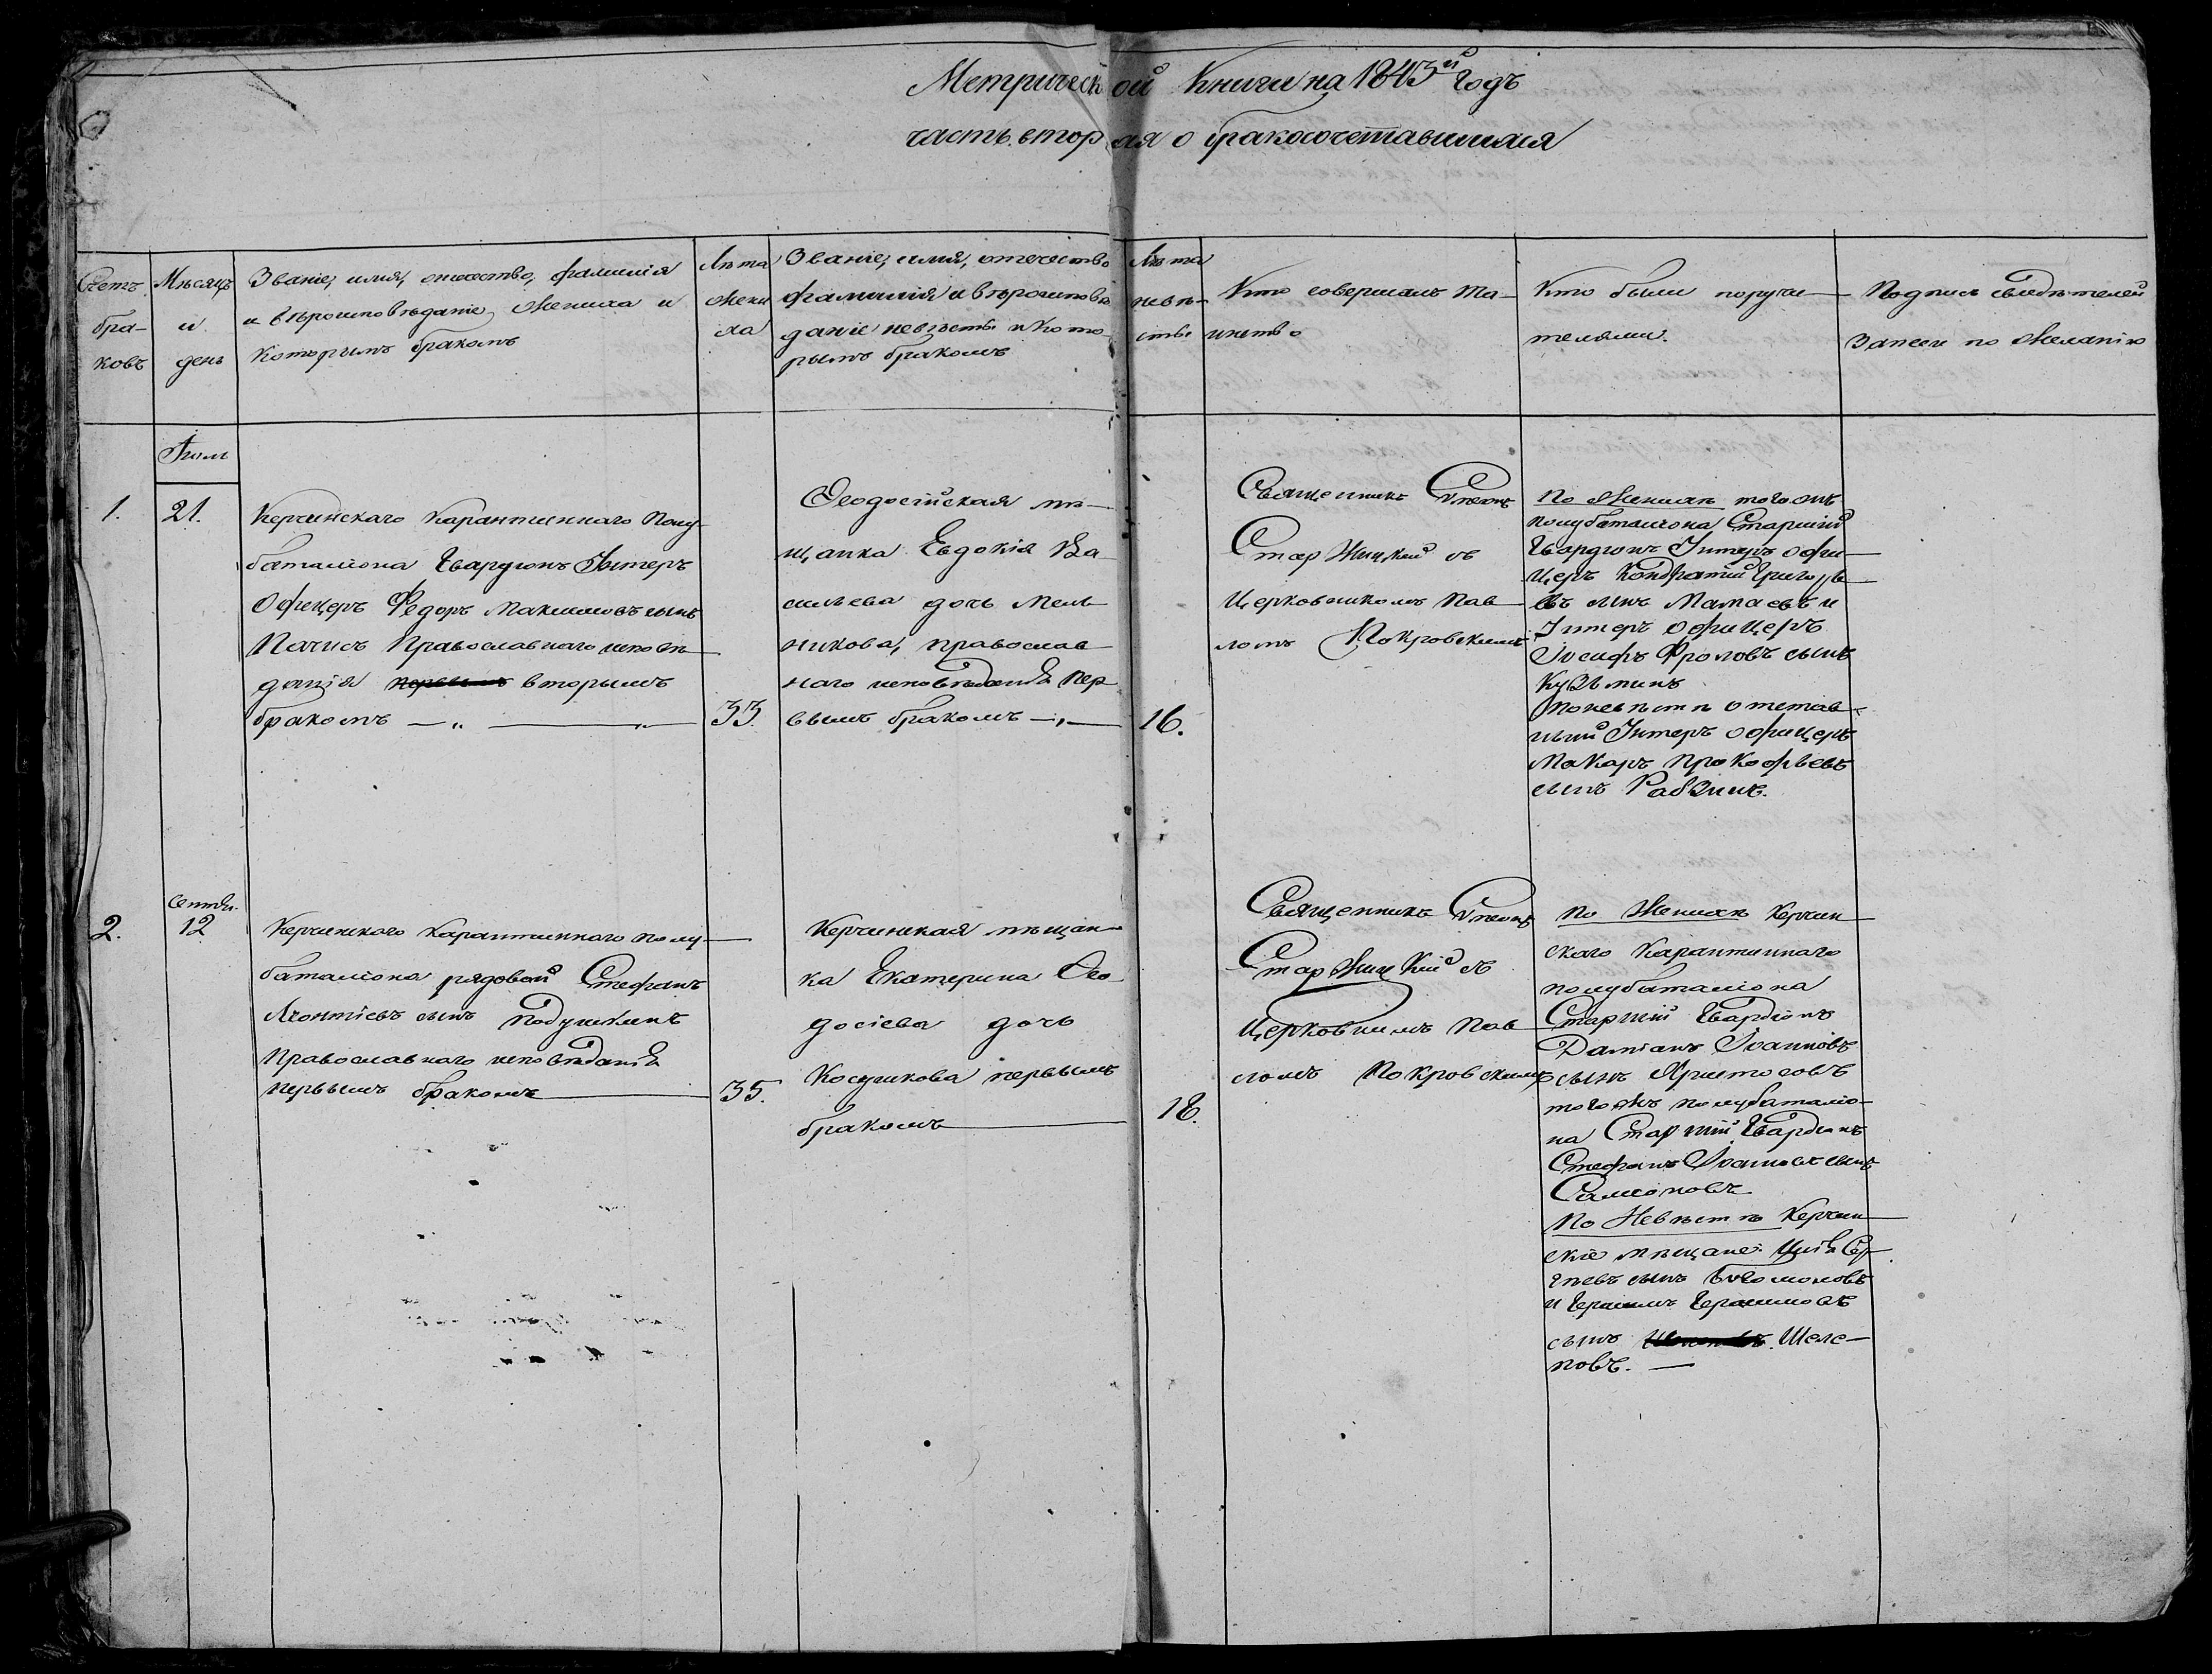 Метрической Книги на 1843й Годъ
часть вторая о бракосочетавшихся
Счетъ браковъ
Мѣсяцъ и день
Званіе, имя, отчество, фамилія
и вѣроисповѣданіе жениха и
которымъ бракомъ
Лѣта жениха
Званіе, имя, отечество
фамилія и вѣроисповѣ
даніе невѣсты и кото
рымъ бракомъ
Лѣта невѣсты
Кто совершалъ Та-
инство
Кто были поручи-
телями.
Подпись свидѣтелей
записи по желанію
1.
Іюль
21.
Керченскаго Карантиннаго Полу
баталіона Гвардіонъ Унтеръ
Офицеръ Федоръ Максимовъ сынъ
Православнаго исповѣ
данія первымъ вторымъ
бракомъ
33.
Феодосійская мѣ-
щанка Евдокія Ва-
сильева дочь Мель
никова, православ
наго исповѣданія пер
вымъ бракомъ
16.
Священникъ Симеонъ
Старжицкій съ
Церковникомъ Пав
ломъ Покровскимъ
По Женихѣ того жъ
полубаталіона Старшій
Гвардіонъ Унтеръ офи-
церъ Кондратій Григорь
евъ сынъ Мамаевъ и
Унтеръ офицеръ
Іосифъ Фроловъ сынъ
Кузьминъ
По невѣстѣ отстав-
ный Унтеръ офицеръ
Макаръ Прокофьевъ
сынъ Рабзинъ.
2.
Сентяб.
12
Керченского карантинного полу-
баталіона рядовой Стефанъ
Леонтіевъ сынъ Подушкинъ
Православнаго исповѣданія
первымъ бракомъ
35.
Керченская мѣщан-
ка Екатерина Фео-
досіева дочь
Косушкова первымъ
бракомъ
18.
Священникъ Симеонъ
Старжицкій съ
Церковникомъ Пав
ломъ Покровскимъ
По Женихѣ Керчен-
скаго Карантиннаго
полубаталіона
Старшій Гвардіонъ
Даміанъ Іоанновъ
сынъ Христосовъ
того жъ полубаталіо-
на Старшій Гвардіонъ
Стефанъ Іоанновъ сынъ
Самсоновъ
По Невѣстѣ Керчен-
скіе мѣщане: Илія Сер-
гѣевъ сынъ Богомоловъ
и Герасимъ Герасимовъ
сынъ Шеле-
повъ.